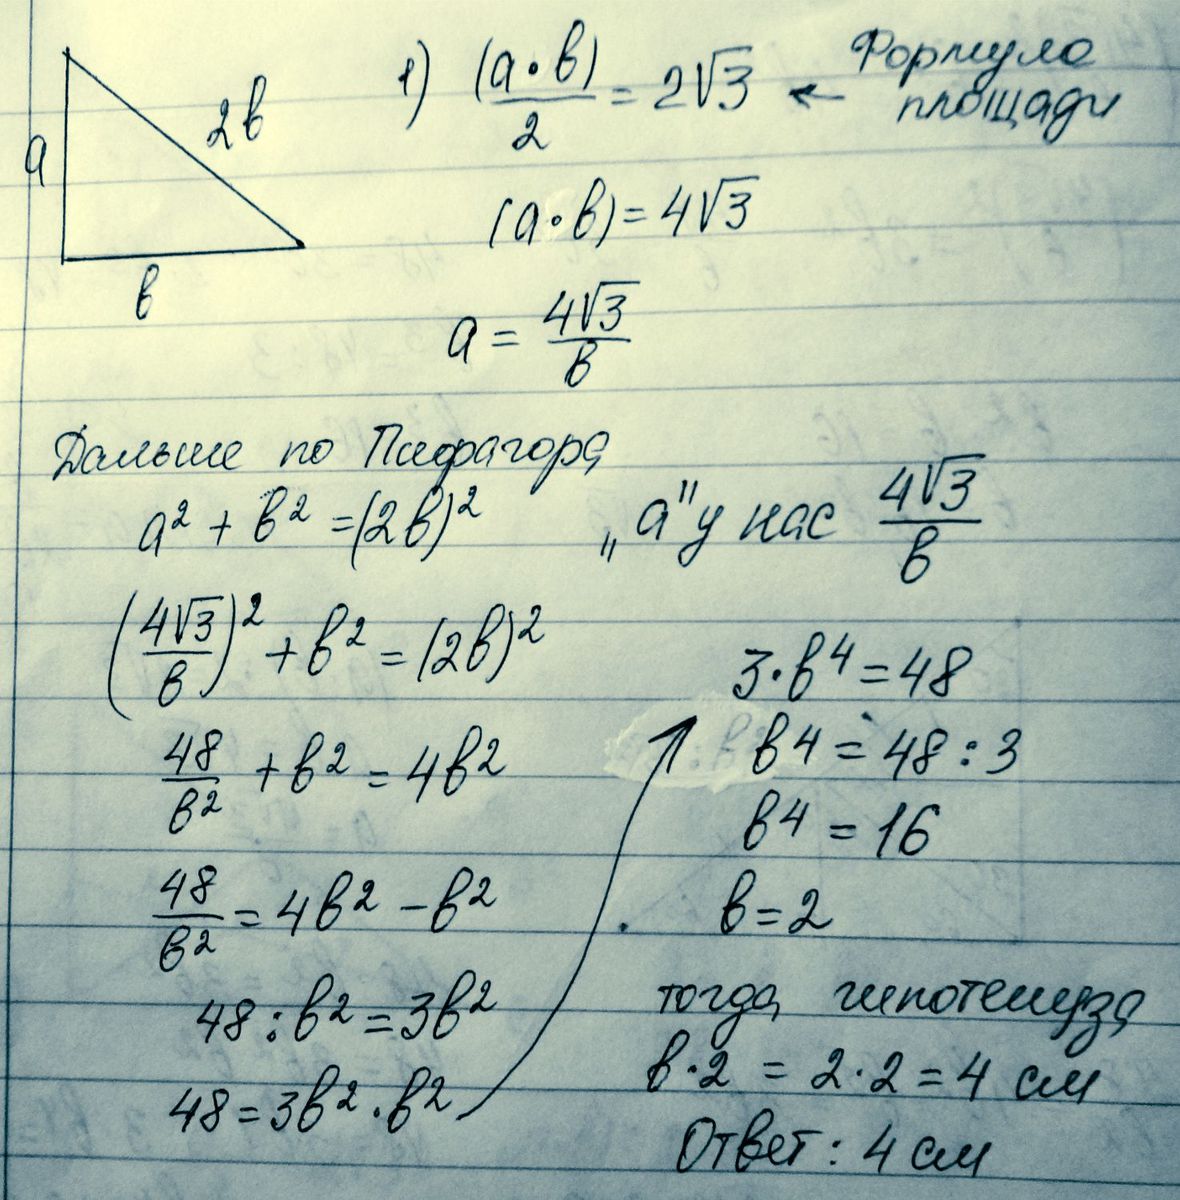 a
2в
в
1) (a·в)/2 = 2√3 ← Формула площади
(a·в) = 4√3
a = 4√3/в
Дальше по Пифагора
a² + в² = (2в)²
„a" у нас 4√3/в
(4√3/в)² + в² = (2в)²
48/в² + в² = 4в²
48/в² = 4в² - в²
48 : в² = 3в²
48 = 3в² · в²
3·в⁴ = 48
в⁴ = 48 : 3
в⁴ = 16
в = 2
тогда гипотенуза
в·2 = 2·2 = 4 см
Ответ: 4 см